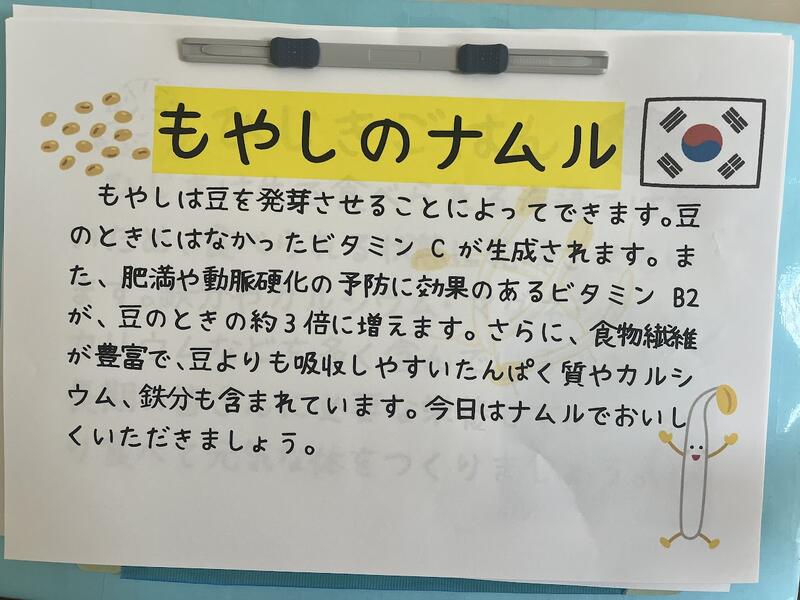 もやしのナムル
もやしは豆を発芽させることによってできます。豆
のときにはなかったビタミン C が生成されます。ま
た、肥満や動脈硬化の予防に効果のあるビタミン B2
が、豆のときの約3倍に増えます。さらに、食物繊維
が豊富で、豆よりも吸収しやすいたんぱく質やカルシ
ウム、鉄分も含まれています。今日はナムルでおいし
くいただきましょう。